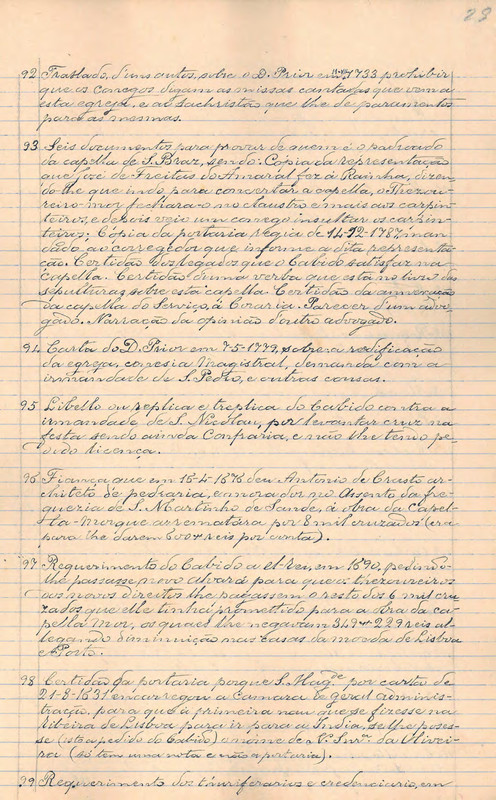 23
92 Traslado d'uns autos, sobre o D. Prior em 1733 prohibir
que os conegos digam as missas cantadas que vem a
esta egreja, e ao Sachristão que lhe dê paramentos
para as mesmas.
93 Seis documentos para provar de quem é o padroado
da capella de S. Braz, sendo: Copia da representação
que José de Freitas do Amaral fez á Rainha, dizen-
do-lhe que indo para concertar a capella, o Thezou-
reiro-mor fechara-o no claustro e mais aos carpin-
teiros, e depois veio um conego insultar os carpin-
teiros; Cópia da portaria regia de 14-12-1787, man-
dado ao corregedor que informe a dita representa-
ção. Certidão dos legados que o Cabido satisfaz na
capella. Certidão d'uma verba que está no livro das
sepulturas sobre esta capella. Certidão da
da capella do Serviço, á Coraria. Parecer d'um advo-
gado. Narração da opinião d'outro advogado.
94 Carta do D. Prior em 7-5-1779, sobre a redificação
da egreja, conesia Magistral, demanda com a
irmandade de S. Pedro, e outras cousas.
95 Libello ou replica e treplica do Cabido contra a
irmandade de S. Nicolau, por levantar cruz na
festa sendo ainda Confraria, e não lhe tendo pe-
dido licença.
96 Fiança que em 15-4-1676 deu Antonio de Crasto ar-
chiteto de pedraria, e morador no Assento da fre-
guezia de S. Martinho de Sande, á obra da Capel-
la-Mor que arrematára por 8 mil cruzados (era
para lhe darem 600 reis por conta).
97 Requerimento do Cabido a el-rei, em 1690, pedindo-
lhe passasse novo alvará para que os thezoureiros
dos novos direitos lhe pagassem o resto dos 6 mil cru-
zados que elle tinha promettido para a obra da ca-
pella Mor, os quaes lhe negavam 349 229 reis al-
legando diminuição nas casas da moeda de Lisboa
e Porto.
98 Certidão da portaria porque S. Magde por carta de
21-8-1631 encarregou a Camara de geral adminis-
tração, para que á primeira nau que se fizesse na
ribeira de Lisboa para ir para a India, se lhe poses-
se (isto a pedido do Cabido) o nome de N. Snra da Olivei-
ra (só tem uma nota e não a portaria).
99 Requerimento dos thuriferarios e credenciario, em